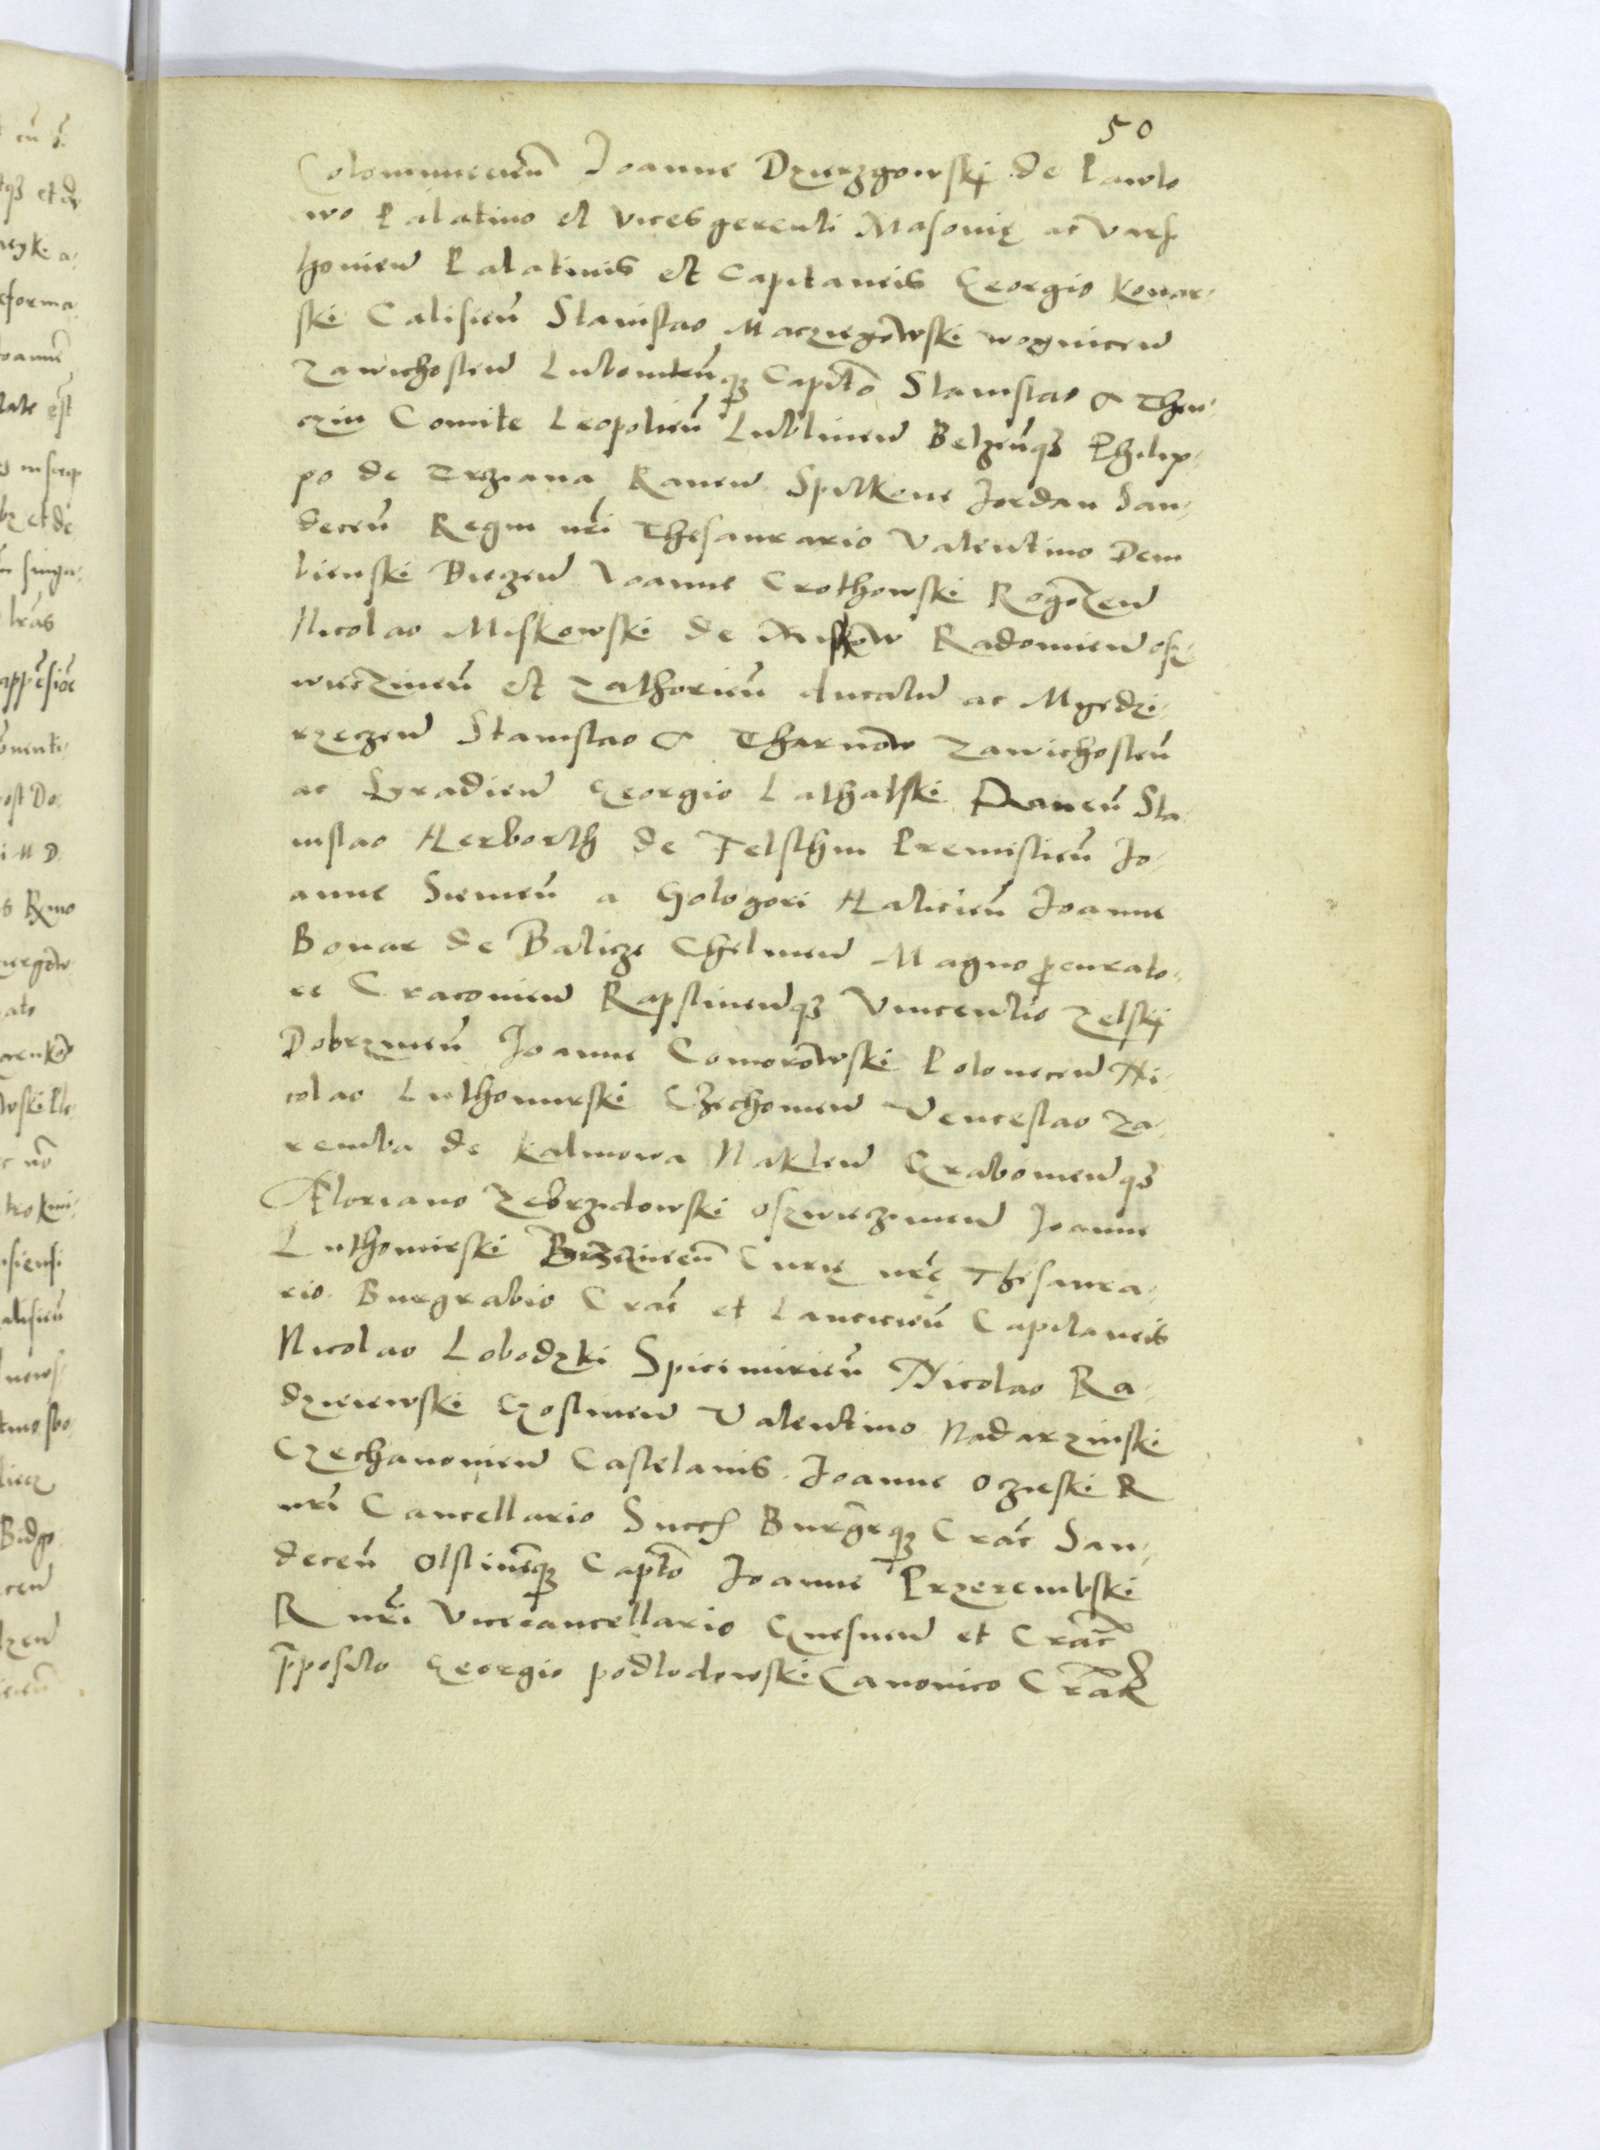 50
Colomiiecień Joanne Dzierzgowskÿ de Pawlo
wo Palatino et vicesgerenti Masovię ac Varſ
hovień Palatinis et Capitaneis Georgio Konar-
ski Calisień Stanislao Maczieyowski Woynicen̄
Zawichostien̄ Lubomlen̄q₃ Capito Stanislao a Then-
czin Comite Leopolien̄ Lublinen̄ Belzen̄q₃ Philip-
po de Trziana Raven̄ Spitkone Jordan San-
decen̄ Regni nr̄i Thesaurario Valentino Dem
bienski Biezen̄ Joanne Crothowski Rogozen̄
Nicolao Miskowski de Miskow Radomien̄ oſ-
wieczimen̄ et Zathorien̄ ducatuū ac Myedzi-
rzeczen̄ Stanislao a Tharnow Zawichostien̄
ac Syradien̄ Georgio Lathalski Raven̄ Sta
nislao Herborth de Felsthin Premislien̄ Jo-
anne Siemen̄ a Gologori Halicien̄ Joanne
Bonar de Balicze Chelmen̄ Magno ꝓcurato-
re Cracovien̄ Rapstinen̄q₃ Vincentio Zelskÿ
Dobrzinen̄ Joanne Comorowski Polonecen̄ Ni-
colao Luthomirski Czchowien̄ Venceslao Za-
remba de Kalinowa Naklen̄ Grabowien̄q₃
Floriano Zebrzidowski oſzwieczimen̄ Joanne
Luthomirski Brzezinen̄ Curię nr̄ę Thesaura-
rio Burgrabio Crac̄ et Lancicien̄ Capitaneis
Nicolao Lobodzki Spicimirien̄ Nicolao Ra-
dzieiewski Gostinen̄ Valentino Nadarzinski
Czechanovien̄ Castelanis. Joanne oczieski R
nr̄i Cancellario Succꝭ Burgrq₃ Crac̄ San-
decen̄ Olstinen̄q₃ Capto Joanne Przerembski
R nr̄i vicecancellario Gnesnen̄ et Crac̄
p̄posito Georgio podlodowski Canonico Crac̄